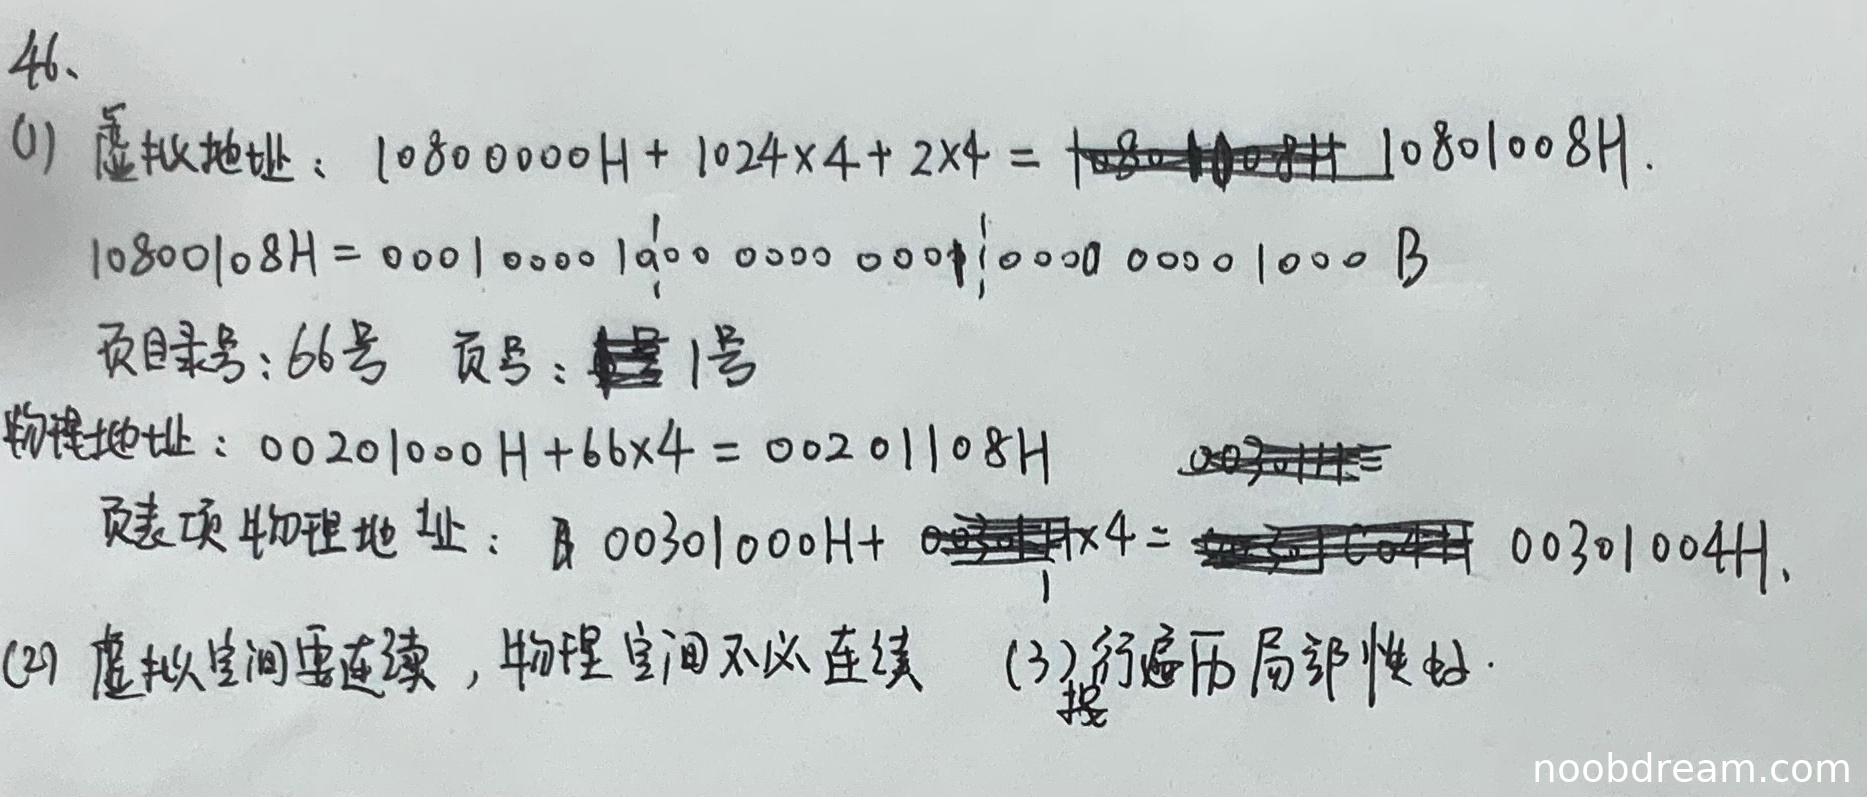 46、
(1) 虚拟地址：10800000H + 1024×4 + 2×4 = 10801008H.
10800108H = 0001 0000 1000 0000 0001 0000 0000 1000 B
页目录号：66号 页号：1号
物理地址：00201000H + 66×4 = 00201108H
页表项物理地址：00301000H + 1×4 = 00301004H.
(2) 虚拟空间要连续，物理空间不必连续 (3) 按行遍历局部性好.
noobdream.com